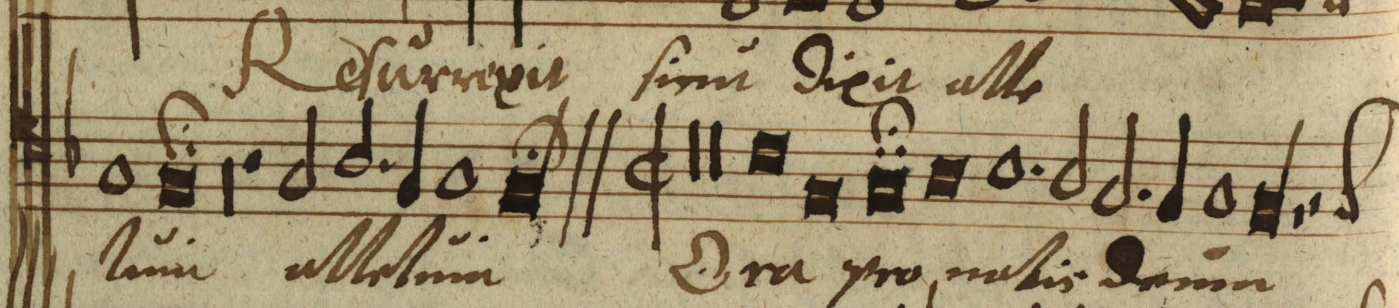 Resurrexit sicut dixit alle
luia alleluia Ora pro nobis deum